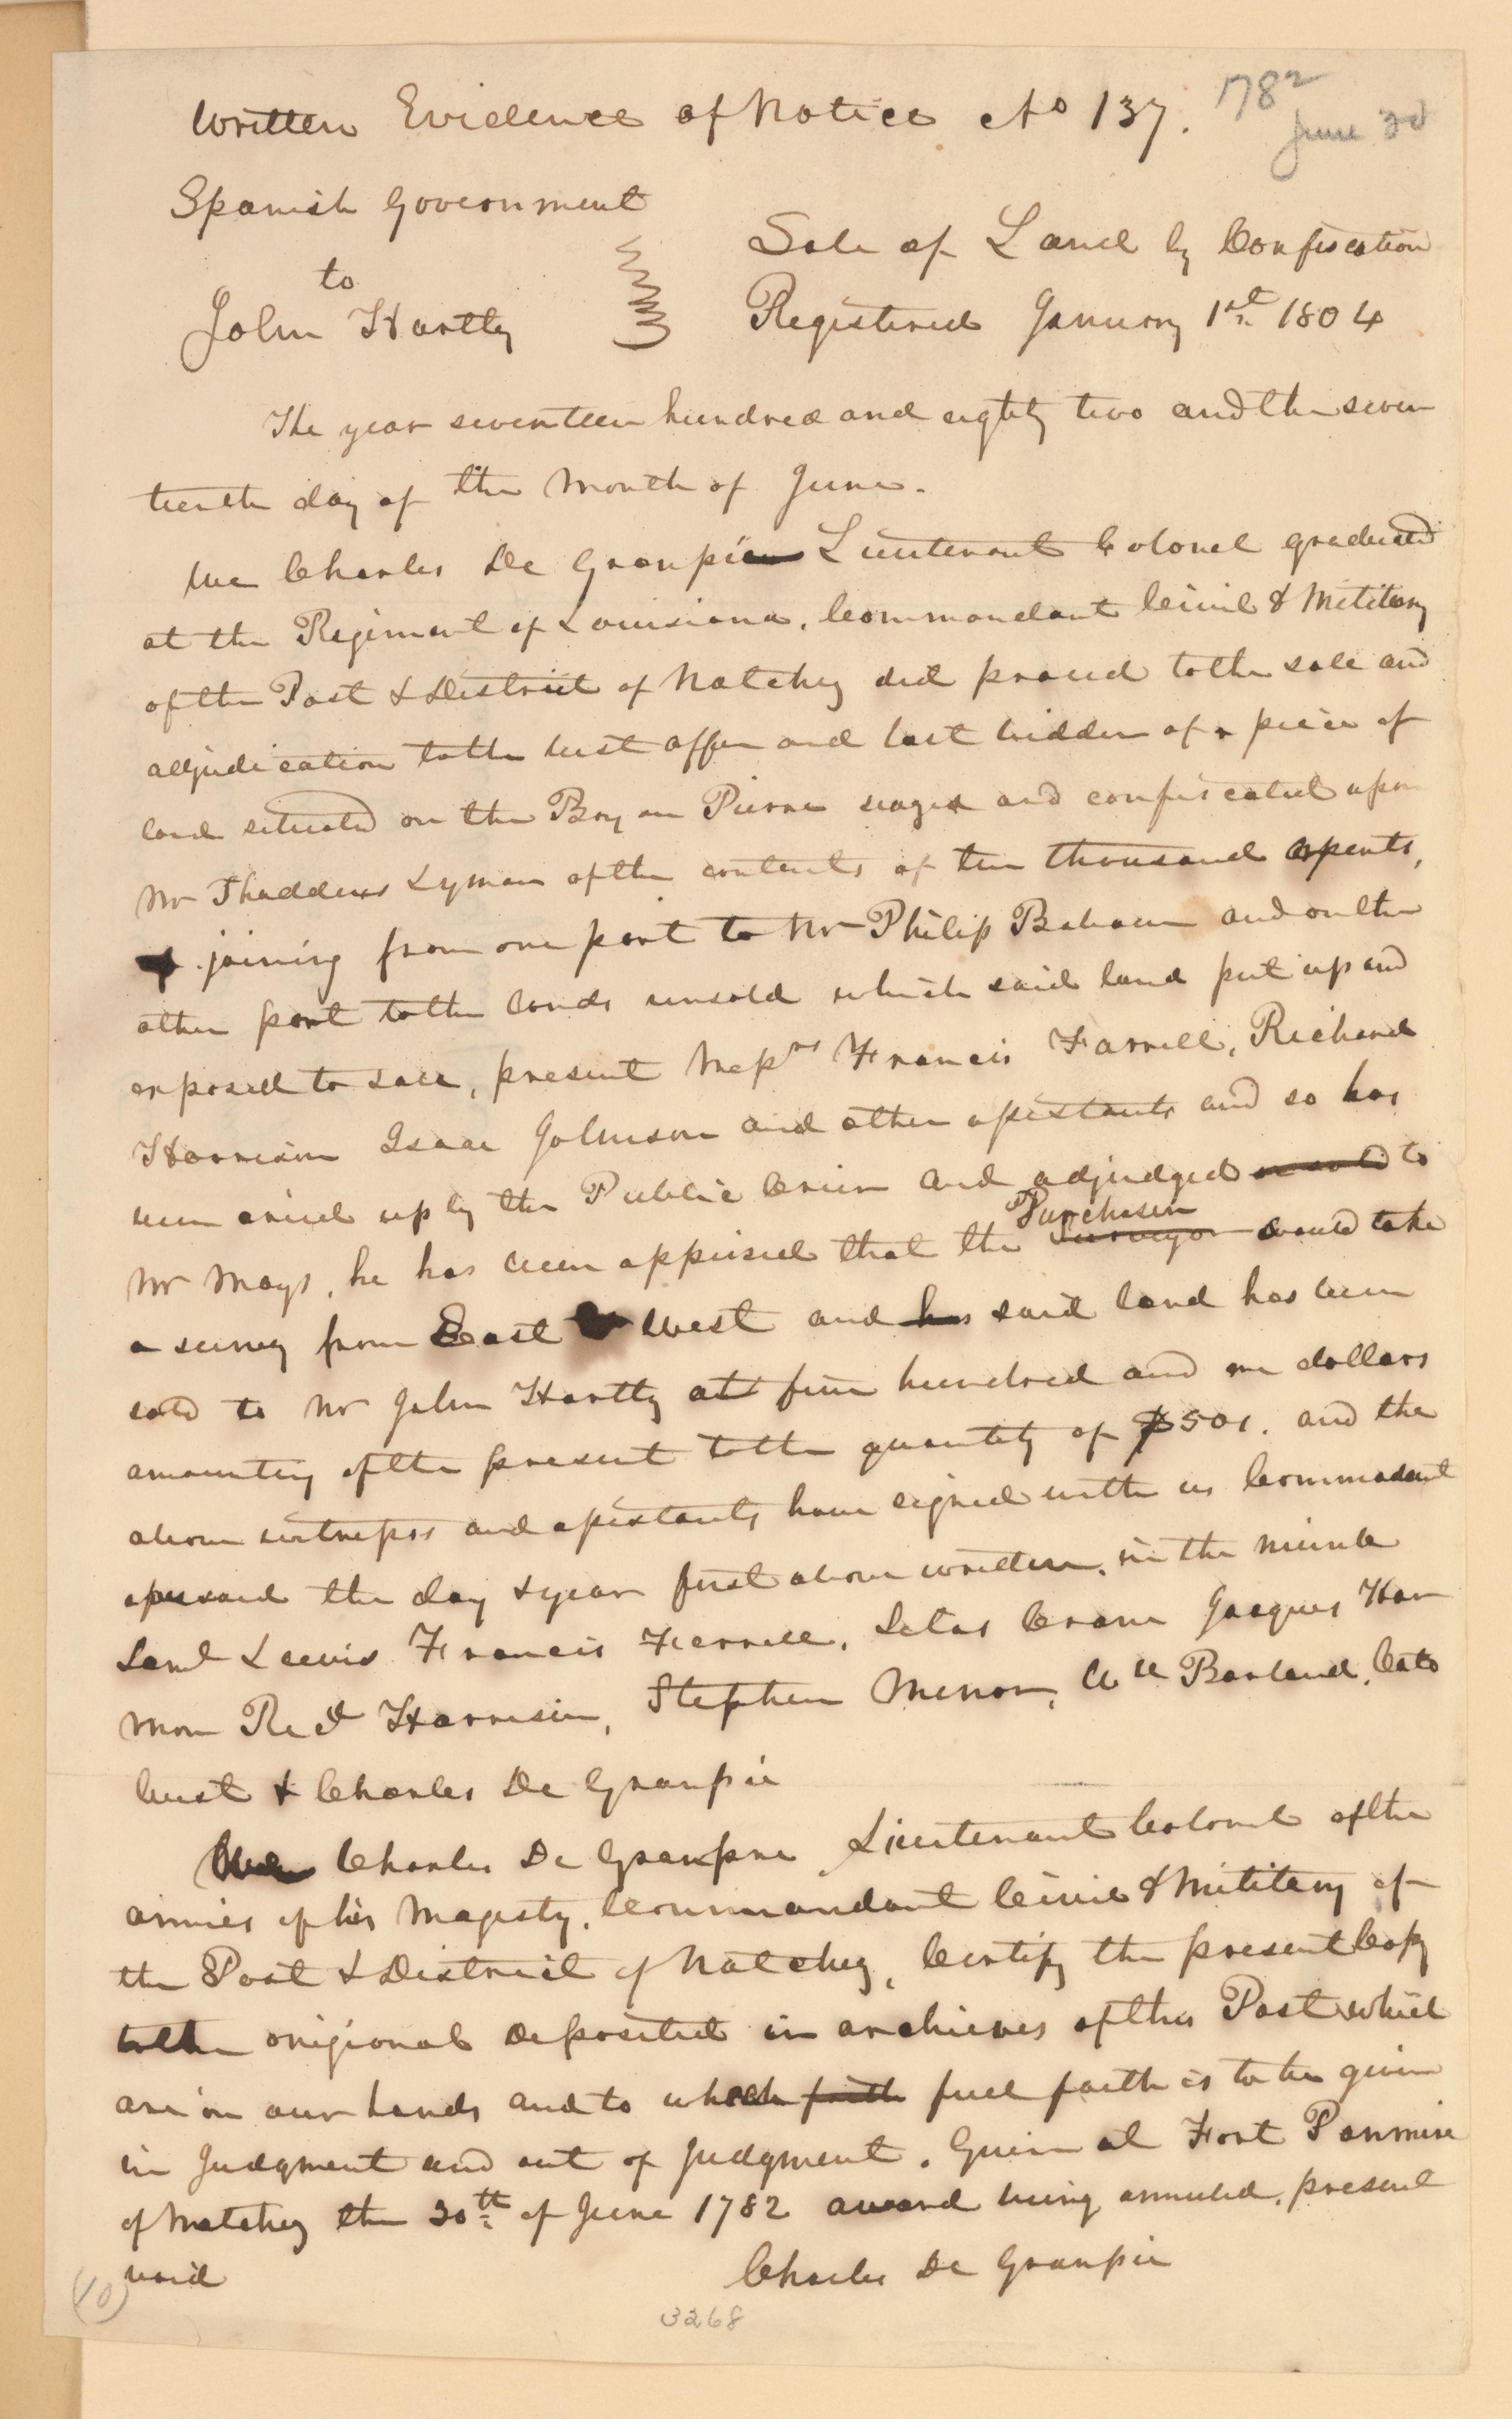 Written Evidence of Notice No 137.
1782
June 30
Spanish Government
to
John Hartly
Sale of Land by Confiscation
Registered January 1st 1804
The year seventeen hundred and eighty two and the seven
teenth day of the Month of June.
We Charles De Granpie Lieutenant Colonel graduated
at the Regiment of Louisiana, Commandant Civil & Military
of the Post & District of Natchez did proceed to the sale and
adjudication to the best offer and last bidder of a piece of
land situated on the Bayou Pierre seazed and confiscated upon
Mr Thaddeus Lyman of the contents of ten thousand arpents,
joining from one part to Mr Philip and on the
other part to the lands unsold which said land put up and
exposed to sale, present Messrs Francis Farrell, Richard
Harrison Isaac Johnson and other assistants and so has
been cried up by the Public Crier and adjudged or sold to
Mr Mays, he has been apprised that the Surveyor Purchaser would take
a survey from East West and has said land has been
sold to Mr John Hartly at five hundred and one dollars
amounting of the present to the quantity of $501. and the
above witnesses and assistants have signed with us Commadant
aforesaid the day & year first above written. in the
Saml Lewis Francis Ferrell, Silas Crane Jacques Har
mon Red Harrison, Stephen Menor, Wll Barland, Cato
West & Charles De Granpie
We Charles De Granpre Lieutenant Colonel of the
armies of his Magesty, Commandant Civil & Military of
the Post & District of Natchez, Certify the present Copy
to the origional Deposited in archieves of this Post which
are in our hands and to which faith full faith is to be given
in Judgment and out of Judgment. Given at Fort Panmure
of Natchez the 30th of June 1782 a word being annuled, present
void
Charles De Granpie
(10)
3268